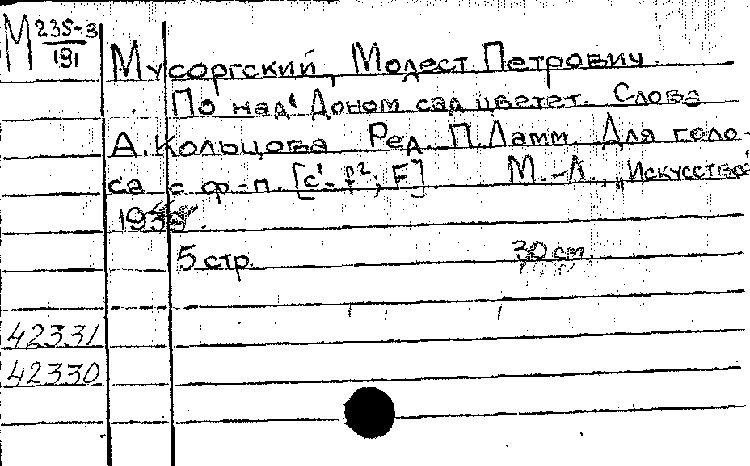 М 235-3
191
Мусоргский, Модест Петрович.
По над Доном сад цветет. Слова
А. Кольцова Ред. П. Ламм. Для голо-
са с ф.-п. [c'-f², F] М.-Л., „Искусство"
5 стр. 30 cm.
42331
42330